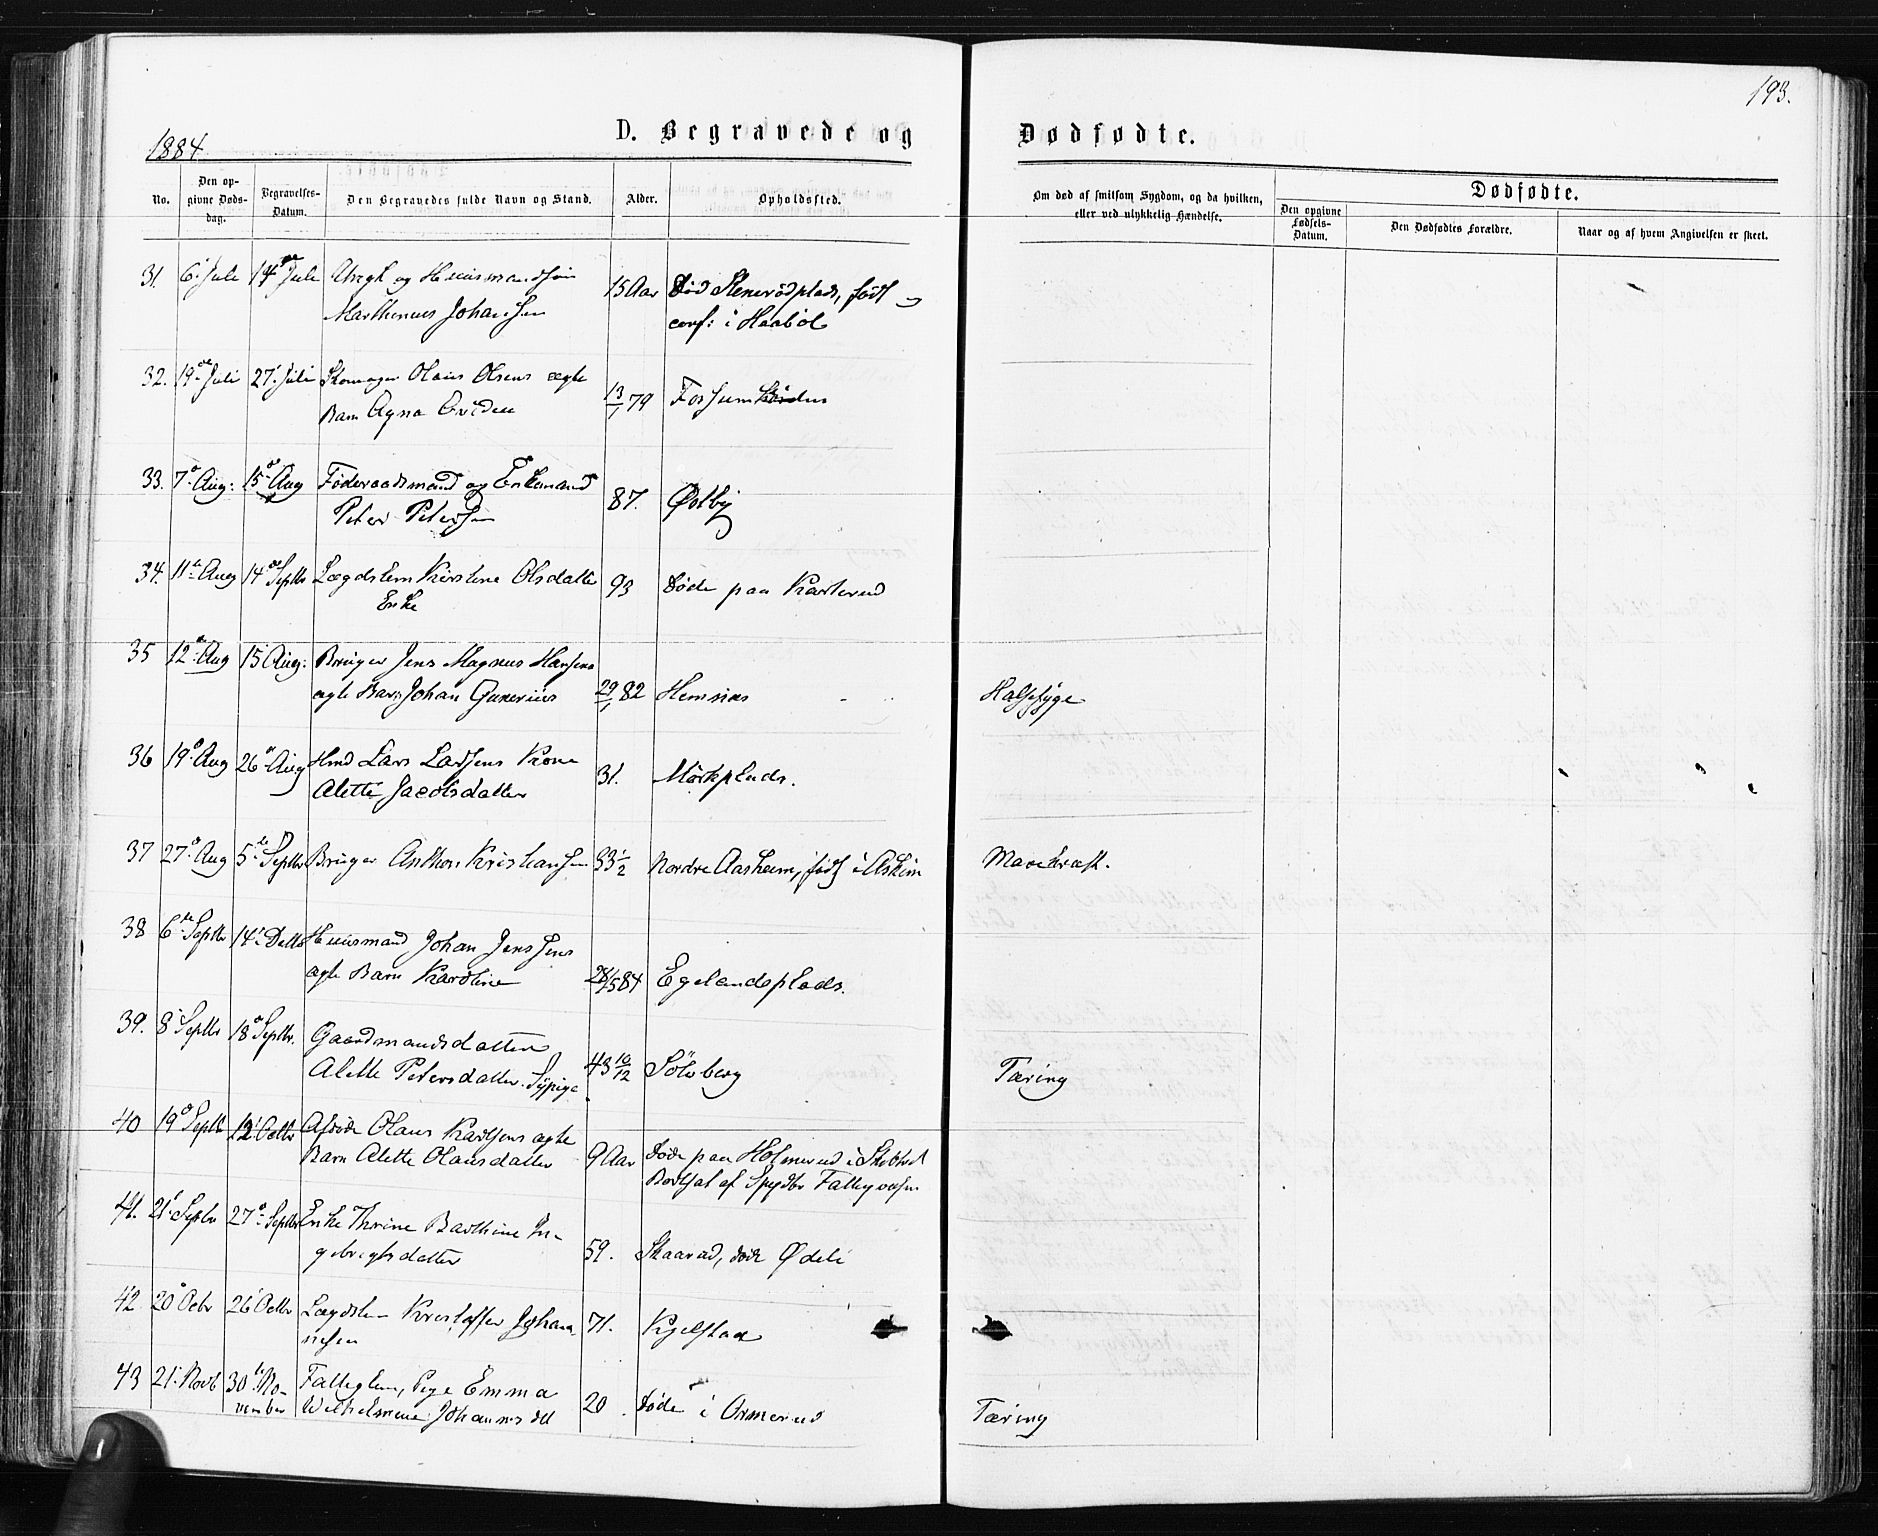 193.
1884
D. Begravede og Dødfødte.
No.
Den opgivne Dødsdag.
Begravelses-Datum.
Den Begravedes fulde Navn og Stand.
Alder.
Opholdssted.
Om død af smitsom Sygdom, og da hvilken, eller ved ulykkelig Hændelse.
Dødfødte.
Den opgivne Fødsels-Datum.
Den Dødfødtes Forældre.
Naar og af hvem Angivelsen er skeet.
31. 6. Juli 14de Juli og Huusmandssøn 15 Aar Død Stenerödplads, født
Marthinius Johansen conf: i Haabøl
32. 19de Juli 27. Juli Skomager Olaus Olsens ægte 13/1 79 Fossum
Barn Agna
33. 7de Aug: 15de Aug Føderaadsmand og Enkemand 87. Østby
Peter Petersen
34. 11te Aug 14de Septbr Lægdslem Kirstine Olsdatter 93 Døde paa Karlerud
Enke
35 12te Aug 15 Aug: Bruger Jens Magnus Hansens
ægte Barn Johan Gunerius 29/1 82 Hemnæs Halssyge
36 19de Aug 26de Aug Hmd Lars Larsens Kone 31. Mörkplads.
Alette Jacobsdatter
37 27de Aug 5te Septbr Bruger Anthon Kristiansen 33 1/2 Nordre Aasheim, født i Askim Mavekræft.
38 6te Septbr 14. Dette Huusmand Johan Jenssens
ægte Barn Karoline 28/5 84 Egelandsplads.
39. 8. Septbr 18de Septbr. Gaardmandsdatter
Alette Petersdatter. Sypige. 43 10/12 Sölvberg Tæring
40 19de Septb 12. Octbr Afdøde Olaus Karlsens ægte
Barn Alette Olausdatter 9 Aar Døde paa Holmerud i
Bortsat af Spydbr Fattigvæsen
41. 21. Septbr 27de Septbr Enke Thrine Barthine In-
gebrigtsdatter 59. Skaarud, døde Ødeli
42. 20de Octbr 26 Octbr Lægdslem Kristoffer Johan
nesen 71. Kjelstad
43 21. Novb 30te No- Fattiglem, Pige Emma
vember Wilhelmine Johannesdtt 20. Døde i Ormerud Tæring